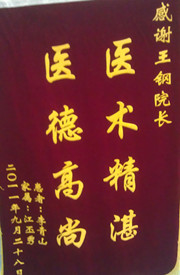 感谢王钢院长
医术精湛
医德高尚
患者:李青山
家属:江丕秀
二〇一一年九月二十八日